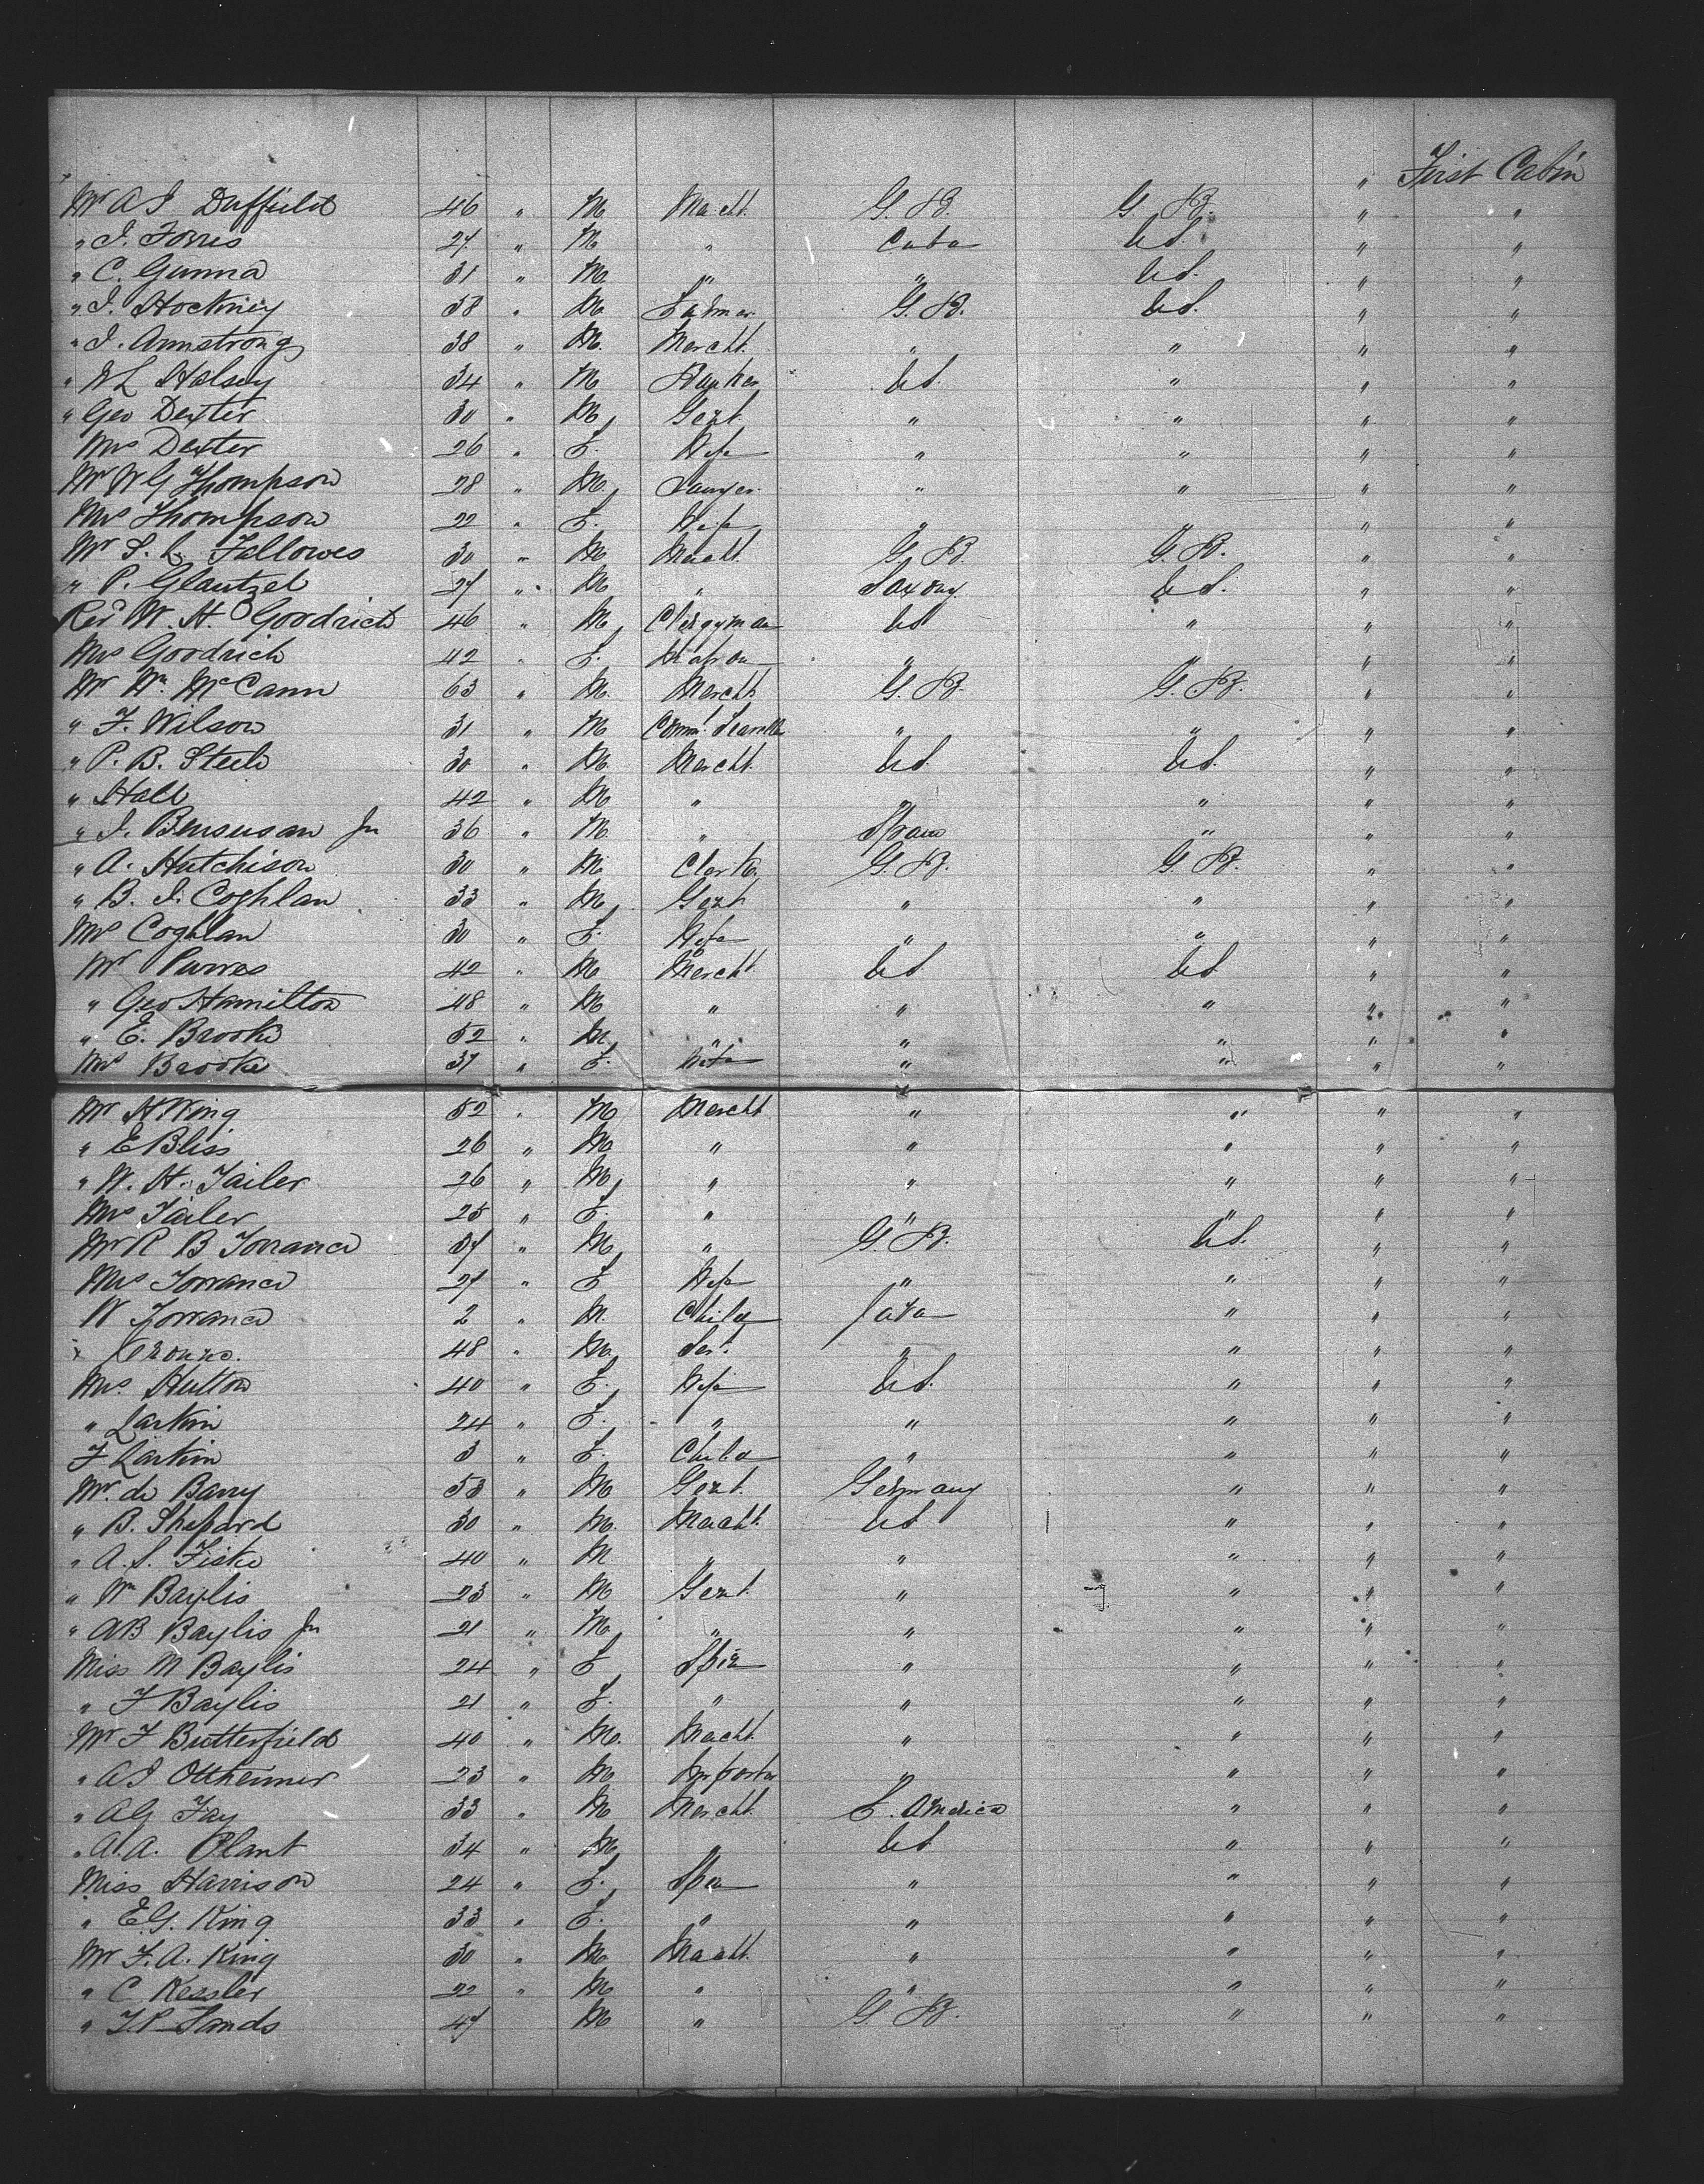 " First Cabin
Mr A J Duffield 46 " M Mercht. G. B. G. B. " "
" J. Torres 27 " M " Cuba U S. " "
" C. Gunna 31 " M. " " U S. " "
" J. Hockney 38 " M Farmer G. B. U S. " "
" J. Armstrong 38 " M. Mercht. " " " "
" W L Halsey 34 " M Banker U S. " " "
" Geo Dexter 30 " M Gent. " " " "
Mrs Dexter 26 " F. Wife " " " "
Mr W G Thompson 28 " M. Lawyer " " " "
Mrs Thompson 22 " F. Wife " " " "
Mr S. L. Fallowes 30 " M Mercht. G. B. G. B. " "
" P. Glautzel 27 " M " Saxony U S. " "
Revd W. H. Goodrich 46 " M Clergyman U S " " "
Mrs Goodrich 42 " F. Matron " " " "
Mr Wm. McCann 63 " M. Mercht G. B. G. B. " "
" F. Wilson 31 " M Comml. Traveller " " " "
" P. B. Steele 30 " M. Mercht. U S. U S. " "
" Hall 42 " M " " " " "
" J. Bensusan Jr 36 " M. " Spain " " "
" A. Hutchison 30 " M Clerk. G. B. G. B. " "
" B. J. Coghlan 33 " M Gent " " " "
Mrs Coghlan 30 " F. Wife " " " "
Mr Purves 42 " M Mercht. U S. U S. " "
" Geo Hamilton 48 " M " " " " "
" E. Brooke 52 " M " " " " "
Mrs Brooke 37 " F. Wife " " " "
Mr H Wing 52 " M Mercht " " " "
" E Bliss 26 " M " " " " "
" W. H. Tailer 26 " M " " " " "
Mrs Tailer 25 " F. " " " " "
Mr R B Torrance 37 " M " G. B. U S. " "
Mrs Torrance 27 " F Wife " " " "
W Torrance 2 " M. Child Java " " "
48 " M. Sert. " " " "
Mrs. Hutton 40 " F. Wife U S. " " "
" Larkin 24 " F. " " " " "
F Larkin 3 " F. Child " " " "
Mr. de Barry 53 " M Gent. Germany " " "
" B. Shepard 30 " M. Mercht. U S " " "
" A. S. Fiske 40 " M " " " " "
" Wm Baylis 23 " M Gent. " " " "
" A B Baylis Jr 21 " M " " " " "
Miss M Baylis 24 " F Spin " " " "
" F Baylis 21 " F. " " " " "
Mr F Butterfield 40 " M. Mercht. " " " "
" A J Ottheimer 23 " M Importer " " " "
" A G Fay 33 " M Mercht. S. America " " "
" A. A. Plant 34 " M " U S " " "
Miss Harrison 24 " F. Spin " " " "
" E. G. King 33 " F. " " " " "
Mr F. A. King 30 " M Mercht. " " " "
" C Kessler 22 " M " " " " "
" T. P. Sands 47 M " G. B. " " "